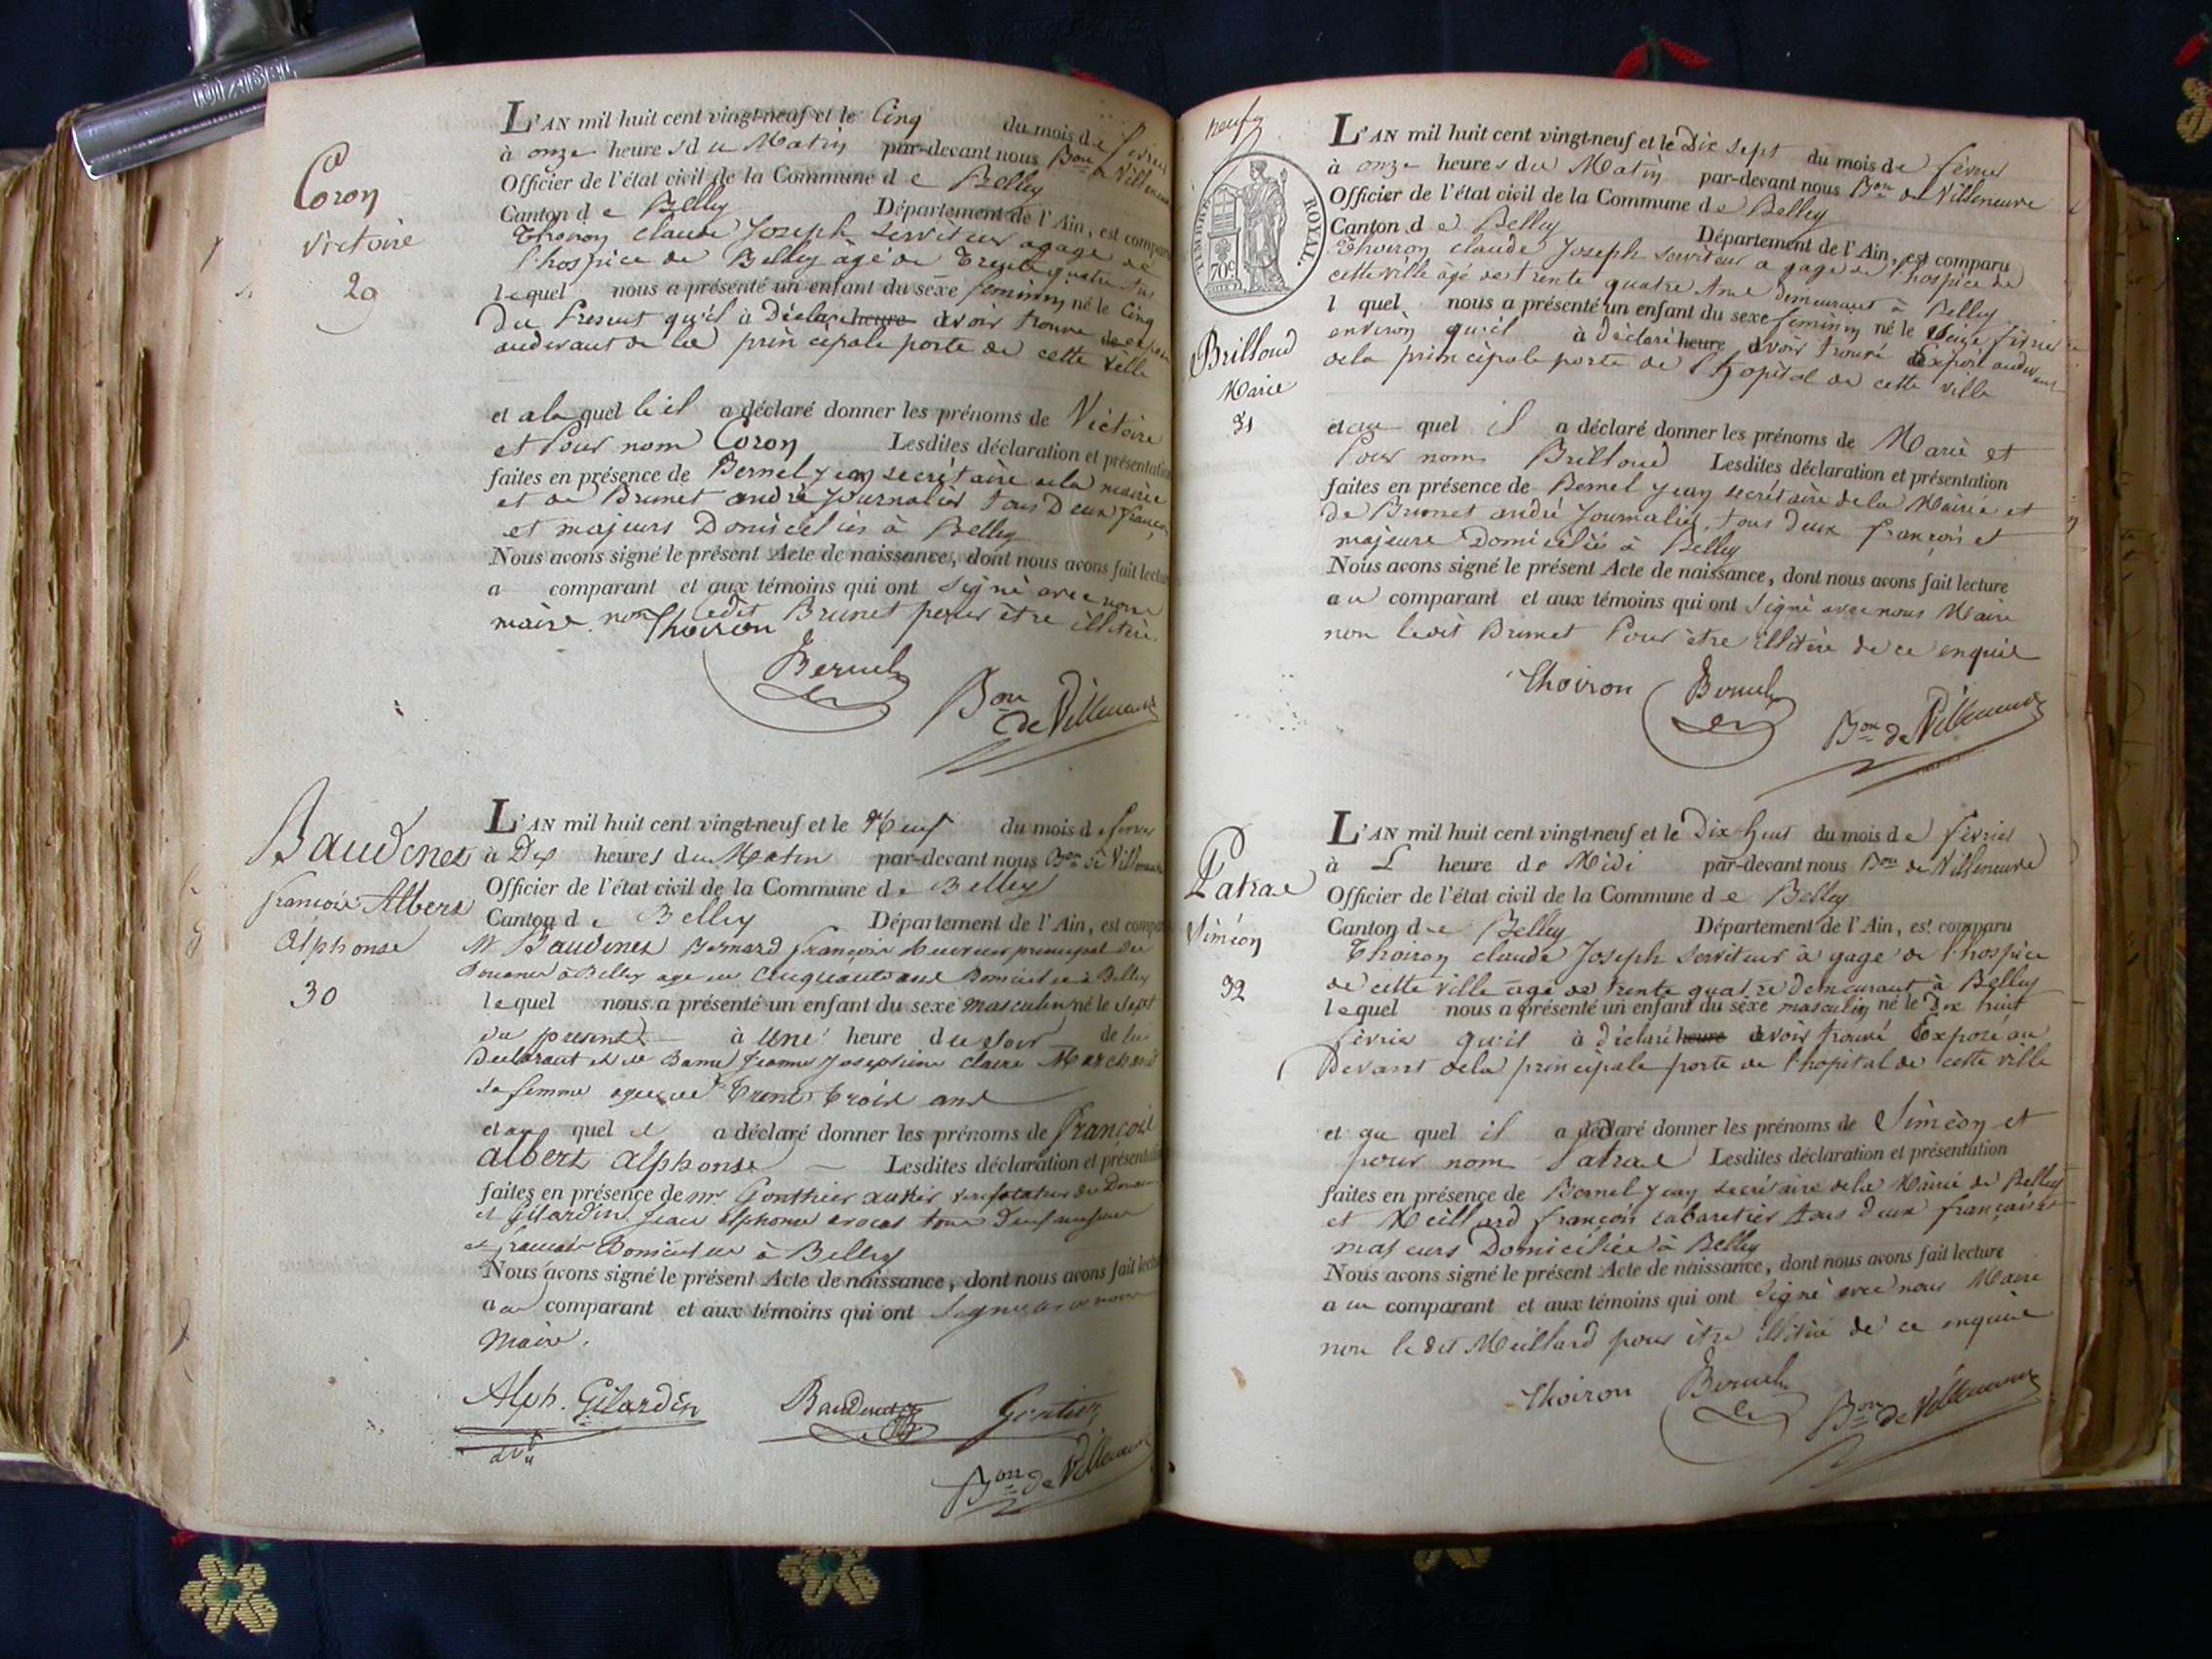 Coron
Victoire
29
L'AN mil huit cent vingt-neuf et le Cinq du mois de février
à onze heures du Matin par-devant nous Bon de Villeneuve
Officier de l'état civil de la Commune de Belley
Canton de Belley Département de l'Ain, est comparu
Thoiron claude Joseph serviteur a gage de
l'hospice de Belley âgé de Trente quatre ans
lequel nous a présenté un enfant du sexe feminin né le Cinq
Du Present qu'il à Déclaré heure avoir trouvé
audevant de la principale porte de cette ville
et a la quel le il a déclaré donner les prénoms de Victoire
et Pour nom Coron Lesdites déclaration et présentation
faites en présence de Bernel Jean secrétaire dela mairie
et de Brunet andré Journalier tous Deux français
et majeurs Domiciliés à Belley
Nous avons signé le présent Acte de naissance, dont nous avons fait lecture
a comparant et aux témoins qui ont signé avec nous
maire non ledit Brunet pour être illitéré
Thoiron
Bernel
Bon de Villeneuve
Baudinet
françois Albert
alphonse
30
L'AN mil huit cent vingt-neuf et le Neuf du mois de fevrier
à Dix heures du Matin par-devant nous Bon de Villeneuve
Officier de l'état civil de la Commune de Belley
Canton de Belley Département de l'Ain, est comparu
Mr Baudinet Bernard françois principal des
Douanes à Belley age de Cinquante ans Domicilié à Belley
lequel nous a présenté un enfant du sexe masculin né le Sept
du present à Une heure du soir de lui
Declarant et de Dame Jeanne Josephine Claire Marchand
sa femme agee de Trente trois ans
et au quel il a déclaré donner les prénoms de françois
albert alphonse Lesdites déclaration et présentation
faites en présence de mr Gonthier xavier verificateur des Douanes
et Gilardin Jean alphonse avocat tous deux majeurs
et français Domiciliés à Belley
Nous avons signé le présent Acte de naissance, dont nous avons fait lecture
au comparant et aux témoins qui ont Signé avec nous
Maire.
Alph. Gilardin
Baudinet
Gontier
Bon de Villeneuve
neuf
TIMBRE ROYAL.
70c
Brilloud
Marie
31
L'AN mil huit cent vingt-neuf et le Dix sept du mois de février
à onze heures du Matin par-devant nous Bon de Villeneuve
Officier de l'état civil de la Commune de Belley
Canton de Belley Département de l'Ain, est comparu
Thoiron claude Joseph serviteur a gage de l'hospice de
cette ville âgé de trente quatre ans demeurant à Belley
l quel nous a présenté un enfant du sexe feminin né le Seize février
environ qu'il à déclaré heure avoir trouvé Exposé audevant
dela principale porte de l'hopital de cette ville
et au quel il a déclaré donner les prénoms de Marie et
Pour nom Brilloud Lesdites déclaration et présentation
faites en présence de Bernel Jean secrétaire dela Mairie et
de Brunet andré Journalier, tous deux françois et
majeurs Domiciliés à Belley
Nous avons signé le présent Acte de naissance, dont nous avons fait lecture
au comparant et aux témoins qui ont signé avec nous Maire
non ledit Brunet Pour être illitéré de ce enquis
Thoiron Bernel
Bon de Villeneuve
Patrae
Siméon
32
L'AN mil huit cent vingt-neuf et le Dix-huit du mois de février
à L heure de Midi par-devant nous Bon de Villeneuve
Officier de l'état civil de la Commune de Belley
Canton de Belley Département de l'Ain, est comparu
Thoiron claude Joseph serviteur à gage de l'hospice
de cette ville age de trente quatre demeurant à Belley
lequel nous a présenté un enfant du sexe masculin né le Dix huit
février qu'il à déclaré heure avoir trouvé Exposé au
Devant dela principale porte de l'hopital de cette ville
et au quel il a déclaré donner les prénoms de Siméon et
pour nom Patrae Lesdites déclaration et présentation
faites en présence de Bernel Jean secrétaire dela Mairie de Belley
et Meilland françois cabaretier tous deux français et
majeurs Domiciliés à Belley
Nous avons signé le présent Acte de naissance, dont nous avons fait lecture
au comparant et aux témoins qui ont signé avec nous Maire
non le dit Meilland pour être illitéré de ce enquis
Thoiron Bernel
Bon de Villeneuve